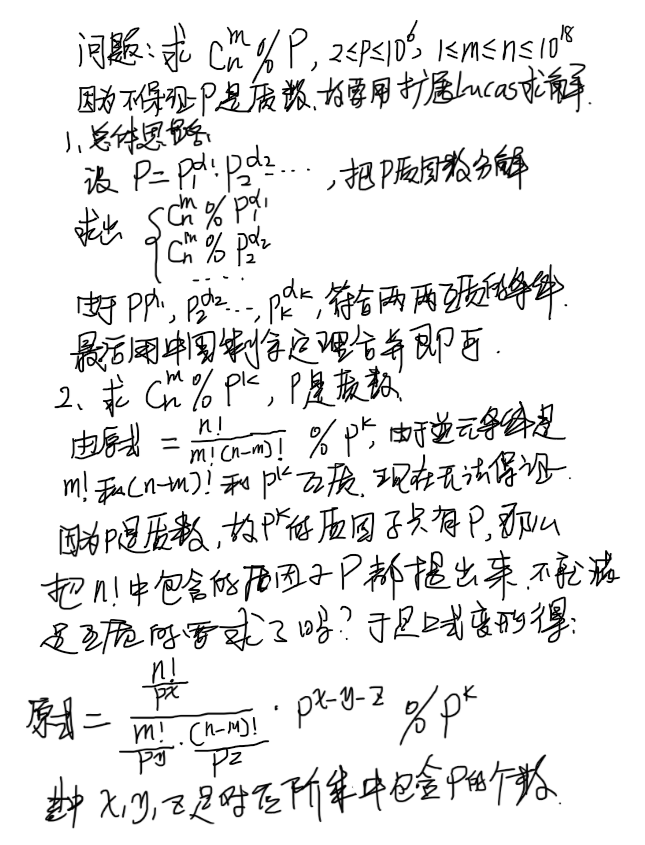 问题：求 C_n^m % P，2≤P≤10^6，1≤m≤n≤10^18
因为不保证P是质数，故要用扩展Lucas求解.
1、总体思路
设 P=P_1^α1·P_2^α2……，把P质因数分解
求出 { C_n^m % P_1^α1
C_n^m % P_2^α2
……
由于 P_1^α1, P_2^α2…, P_k^αk，符合两两互质的条件.
最后用中国剩余定理合并即可.
2、求 C_n^m % P^k，P是质数
由原式 = n!/(m!(n-m)!) % P^k，由于逆元条件是
m!和(n-m)!和 P^k 互质. 现在无法保证
因为P是质数，故P^k的质因子只有P，那么
把n!中包含的质因子P都提出来，不就满
足互质的要求了吗？于是上式变形得：
原式 = (n!/P^x)/((m!/P^y)·((n-m)!/P^z)) · P^(x-y-z) % P^k
其中 x,y,z是对应阶乘中包含P的个数.